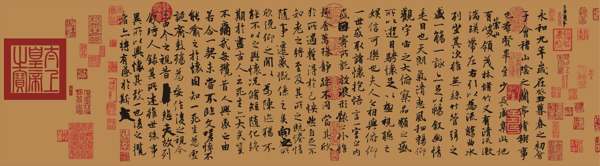 永和九年歲在癸丑暮春之初會
于會稽山陰之蘭亭脩稧事
也群賢畢至少長咸集此地
有峻領茂林脩竹又有清流激
湍暎帶左右引以為流觴曲水
列坐其次雖無絲竹管弦之
盛一觴一詠亦足以暢叙幽情
是日也天朗氣清惠風和暢仰
觀宇宙之大俯察品類之盛
所以遊目騁懷足以極視聽之
娛信可樂也夫人之相與俯仰
一世或取諸懷抱悟言一室之內
或因寄所託放浪形骸之外雖
趣舍萬殊靜躁不同當其欣
於所遇暫得於己快然自足不
知老之將至及其所之既惓情
隨事遷感慨係之矣向之所
欣俛仰之間以為陳迹猶不
能不以之興懷況脩短隨化終
期於盡古人云死生亦大矣豈
不痛哉每攬昔人興感之由
若合一契未嘗不臨文嗟悼不
能喻之於懷固知一死生為虛
誕齊彭殤為妄作後之視今
亦由今之視昔悲夫故列
叙時人錄其所述雖世殊事
異所以興懷其致一也後之攬
者亦將有感於斯文
太上皇帝之寶